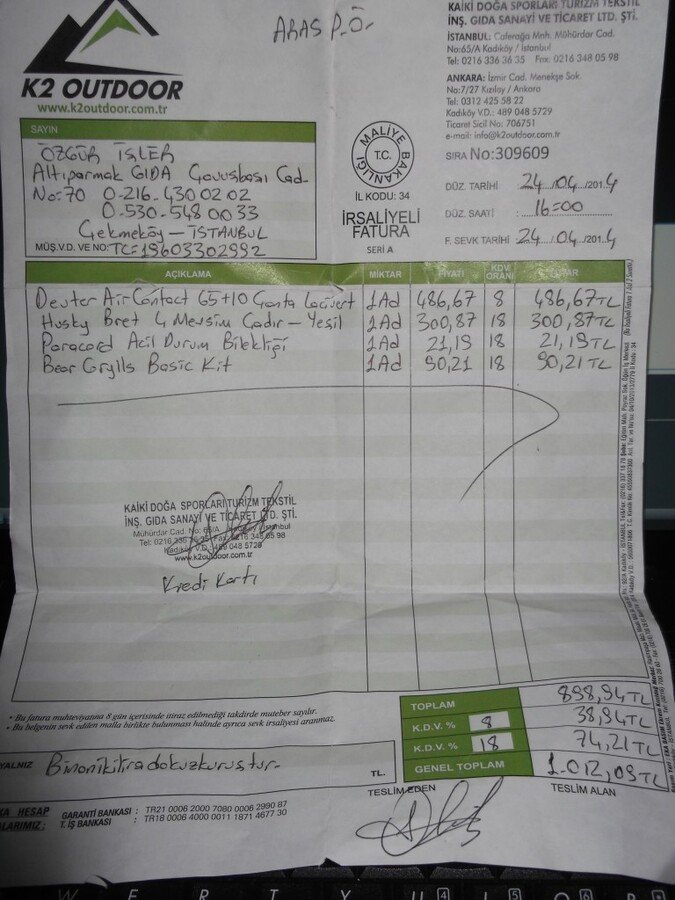 ARAS P.Ö.
K2 OUTDOOR
www.k2outdoor.com.tr
KAİKİ DOĞA SPORLARI TURİZM TEKSTİL
İNŞ. GIDA SANAYİ VE TİCARET LTD. ŞTİ.
İSTANBUL: Caferağa Mnh. Mühürdar Cad.
No:65/A Kadıköy / İstanbul
Tel: 0216 336 36 35 Fax: 0216 348 05 98
ANKARA: İzmir Cad. Menekşe Sok.
No:7/27 Kızılay / Ankara
Tel: 0312 425 58 22
Kadıköy V.D.: 489 048 5729
Ticaret Sicil No: 706751
e-mail: info@k2outdoor.com.tr
SIRA No:309609
DÜZ. TARİHİ : 24/04/2014
DÜZ. SAATİ : 16=00
F. SEVK TARİHİ : 24/04/2014
MALİYE BAKANLIĞI
T.C.
İL KODU: 34
İRSALİYELİ
FATURA
SERİ A
SAYIN
ÖZGÜR İŞLER
Altıparmak GIDA Çavuşbaşı Cad.
No:70 0-216-430 02 02
0-530-548 00 33
Çekmeköy – İSTANBUL
MÜŞ.V.D. VE NO: TC=19603302992
AÇIKLAMA MİKTAR FİYATI KDV ORANI TUTAR
Deuter AirContact 65+10 Çanta Lacivert 1Ad 486,67 8 486,67TL
Husky Bret 4 Mevsim Çadır – Yeşil 1Ad 300,87 18 300,87TL
Paracord Acil Durum Bilekliği 1Ad 21,19 18 21,19TL
Bear Grylls Basic Kit 1Ad 90,21 18 90,21TL
KAİKİ DOĞA SPORLARI TURİZM TEKSTİL
İNŞ. GIDA SANAYİ VE TİCARET LTD. ŞTİ.
Mühürdar Cad. No: 65/A Kadıköy / İstanbul
Tel: 0216 336 36 35 Fax: 0216 348 05 98
Kadıköy V.D.: 489 048 5729
www.k2outdoor.com.tr
Kredi Kartı
• Bu fatura muhteviyatına 8 gün içerisinde itiraz edilmediği takdirde muteber sayılır.
• Bu belgenin sevk edilen malla birlikte bulunması halinde ayrıca sevk irsaliyesi aranmaz.
TOPLAM 898,94TL
K.D.V. % 8 38,94TL
K.D.V. % 18 74,21TL
GENEL TOPLAM 1.012,09TL
YALNIZ Binonikiliradokuzkuruştur- TL.
TESLİM EDEN TESLİM ALAN
HESAP
GARANTİ BANKASI : TR21 0006 2000 7080 0006 2990 87
T. İŞ BANKASI : TR18 0006 4000 0011 1871 4677 30
W E R T Y U 4 I 5 O 6 P